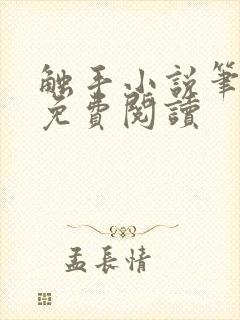 触手小说筆
免費閱讀
孟長情